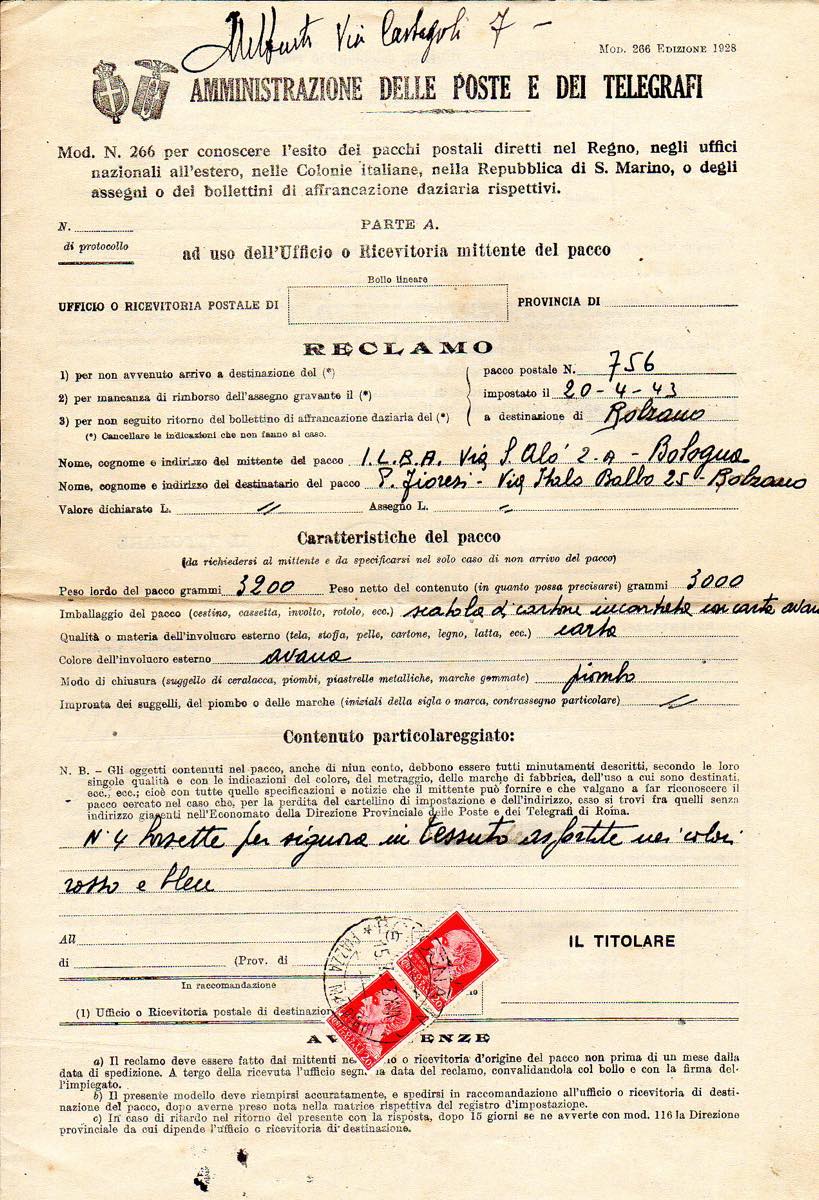 Via Castagoli 7 -
MOD. 266 EDIZIONE 1928
AMMINISTRAZIONE DELLE POSTE E DEI TELEGRAFI
Mod. N. 266 per conoscere l'esito dei pacchi postali diretti nel Regno, negli uffici
nazionali all'estero, nelle Colonie italiane, nella Repubblica di S. Marino, o degli
assegni o dei bollettini di affrancazione daziaria rispettivi.
N.
di protocollo
PARTE A.
ad uso dell'Ufficio o Ricevitoria mittente del pacco
Bollo lineare
UFFICIO O RICEVITORIA POSTALE DI
PROVINCIA DI
RECLAMO
1) per non avvenuto arrivo a destinazione del (*)
2) per mancanza di rimborso dell'assegno gravante il (*)
3) per non seguito ritorno del bollettino di affrancazione daziaria del (*)
(*) Cancellare le indicazioni che non fanno al caso.
pacco postale N. 756
impostato il 20-4-43
a destinazione di Bolzano
Nome, cognome e indirizzo del mittente del pacco I.L.B.A. Via S. Alò 2-A - Bologna
Nome, cognome e indirizzo del destinatario del pacco P. Fioresi - Via Italo Balbo 25 - Bolzano
Valore dichiarato L. // Assegno L. //
Caratteristiche del pacco
(da richiedersi al mittente e da specificarsi nel solo caso di non arrivo del pacco)
Peso lordo del pacco grammi 3200 Peso netto del contenuto (in quanto possa precisarsi) grammi 3000
Imballaggio del pacco (cestino, cassetta, involto, rotolo, ecc.) scatola di cartone incartata con carta avana
Qualità o materia dell'involucro esterno (tela, stoffa, pelle, cartone, legno, latta, ecc.) carta
Colore dell'involucro esterno avana
Modo di chiusura (suggello di ceralacca, piombi, piastrelle metalliche, marche gommate) piombo
Impronta dei suggelli, del piombo o delle marche (iniziali della sigla o marca, contrassegno particolare) //
Contenuto particolareggiato:
N. B. - Gli oggetti contenuti nel pacco, anche di niun conto, debbono essere tutti minutamenti descritti, secondo le loro
singole qualità e con le indicazioni del colore, del metraggio, delle marche di fabbrica, dell'uso a cui sono destinati,
ecc., ecc.; cioè con tutte quelle specificazioni e notizie che il mittente può fornire e che valgano a far riconoscere il
pacco cercato nel caso che, per la perdita del cartellino di impostazione e dell'indirizzo, esso si trovi fra quelli senza
indirizzo giacenti nell'Economato della Direzione Provinciale delle Poste e dei Telegrafi di Roma.
N. 4 borsette per signora in tessuto assortite nei colori
rosso e bleu
All
di (Prov. di
IL TITOLARE
In raccomandazione
(1) Ufficio o Ricevitoria postale di destinazion
AV ENZE
a) Il reclamo deve essere fatto dai mittenti o ricevitoria d'origine del pacco non prima di un mese dalla
data di spedizione. A tergo della ricevuta l'ufficio segn la data del reclamo, convalidandola col bollo e con la firma del-
l'impiegato.
b) Il presente modello deve riempirsi accuratamente, e spedirsi in raccomandazione all'ufficio o ricevitoria di desti-
nazione del pacco, dopo averne preso nota nella matrice rispettiva del registro d'impostazione.
c) In caso di ritardo nel ritorno del presente con la risposta, dopo 15 giorni se ne avverte con mod. 116 la Direzione
provinciale da cui dipende l'ufficio o ricevitoria di destinazione.